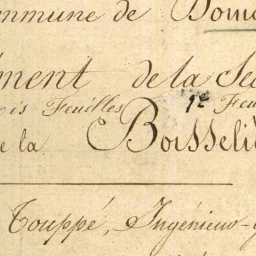 ommune de Dom
ment de la Sec
is Feuilles 1e Feu
e la Boisseli
Touppé, Ingénieur-g